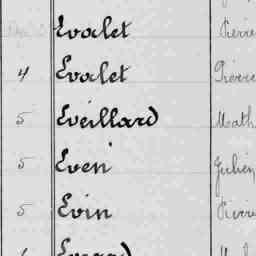 Evalet Pierre
4 Evalet Pierre
5 Eveillard Math
5 Even Julien
5 Evin Pierre